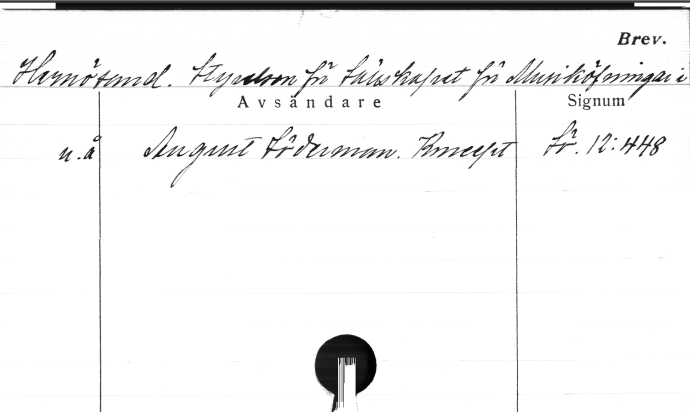 Brev.
Hernösand. Styrelsen för Sällskapet för Musiköfningar i
Avsändare Signum
u.å August Söderman. Koncept Sö. 12:448